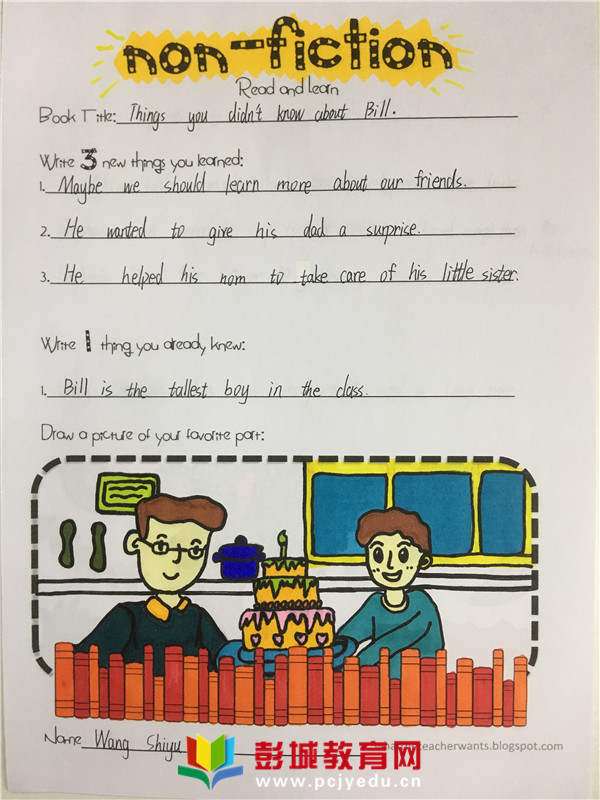 non-fiction
Read and learn
Book Title: Things you didn't know about Bill.
Write 3 new things you learned:
1. Maybe we should learn more about our friends.
2. He wanted to give his dad a surprise.
3. He helped his mom to take care of his little sister.
Write 1 thing you already knew:
1. Bill is the tallest boy in the class.
Draw a picture of your favorite part:
Name Wang Shiyu
teacherwants.blogspot.com
彭城教育网
www.pcjyedu.cn